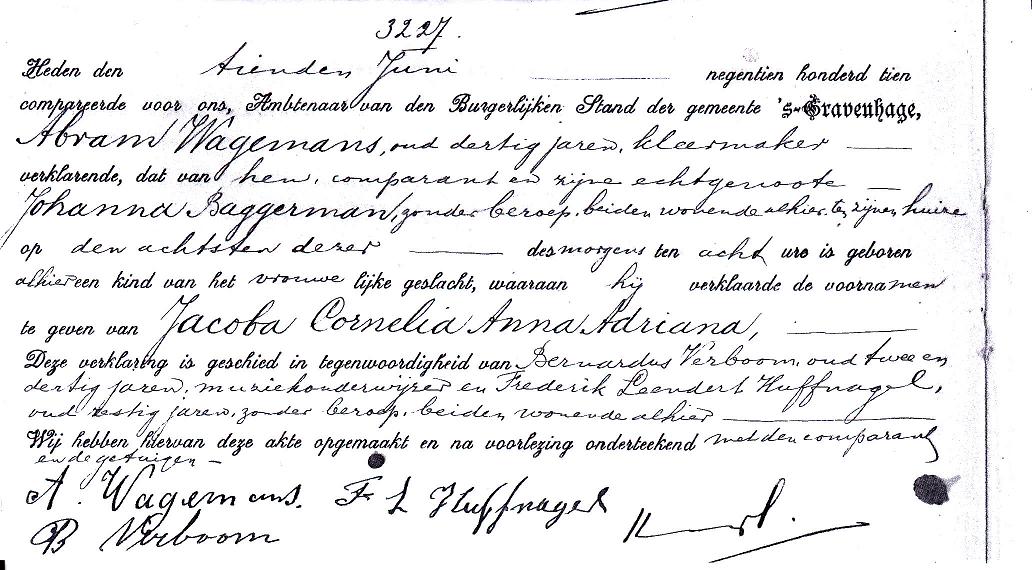 3227.
Heden den tienden Juni negentien honderd tien
compareerde voor ons, Ambtenaar van den Burgerlijken Stand der gemeente 's-Gravenhage,
Abram Wagemans, oud dertig jaren, kleermaker
verklarende, dat van hem, comparant en zijne echtgenoote
Johanna Baggerman, zonder beroep, beiden wonende alhier, te zijnen huize
op den achtsten dezer des morgens ten acht ure is geboren
alhier een kind van het vrouwelijke geslacht, waaraan hij verklaarde de voornamen
te geven van Jacoba Cornelia Anna Adriana,
Deze verklaring is geschied in tegenwoordigheid van Bernardus Verboom, oud twee en
dertig jaren, muziekonderwijzer en Frederik Leendert Huffnagel,
oud zestig jaren, zonder beroep, beiden wonende alhier
Wij hebben hiervan deze akte opgemaakt en na voorlezing onderteekend met den comparant
en de getuigen
A. Wagemans. F L Huffnagel
B Verboom